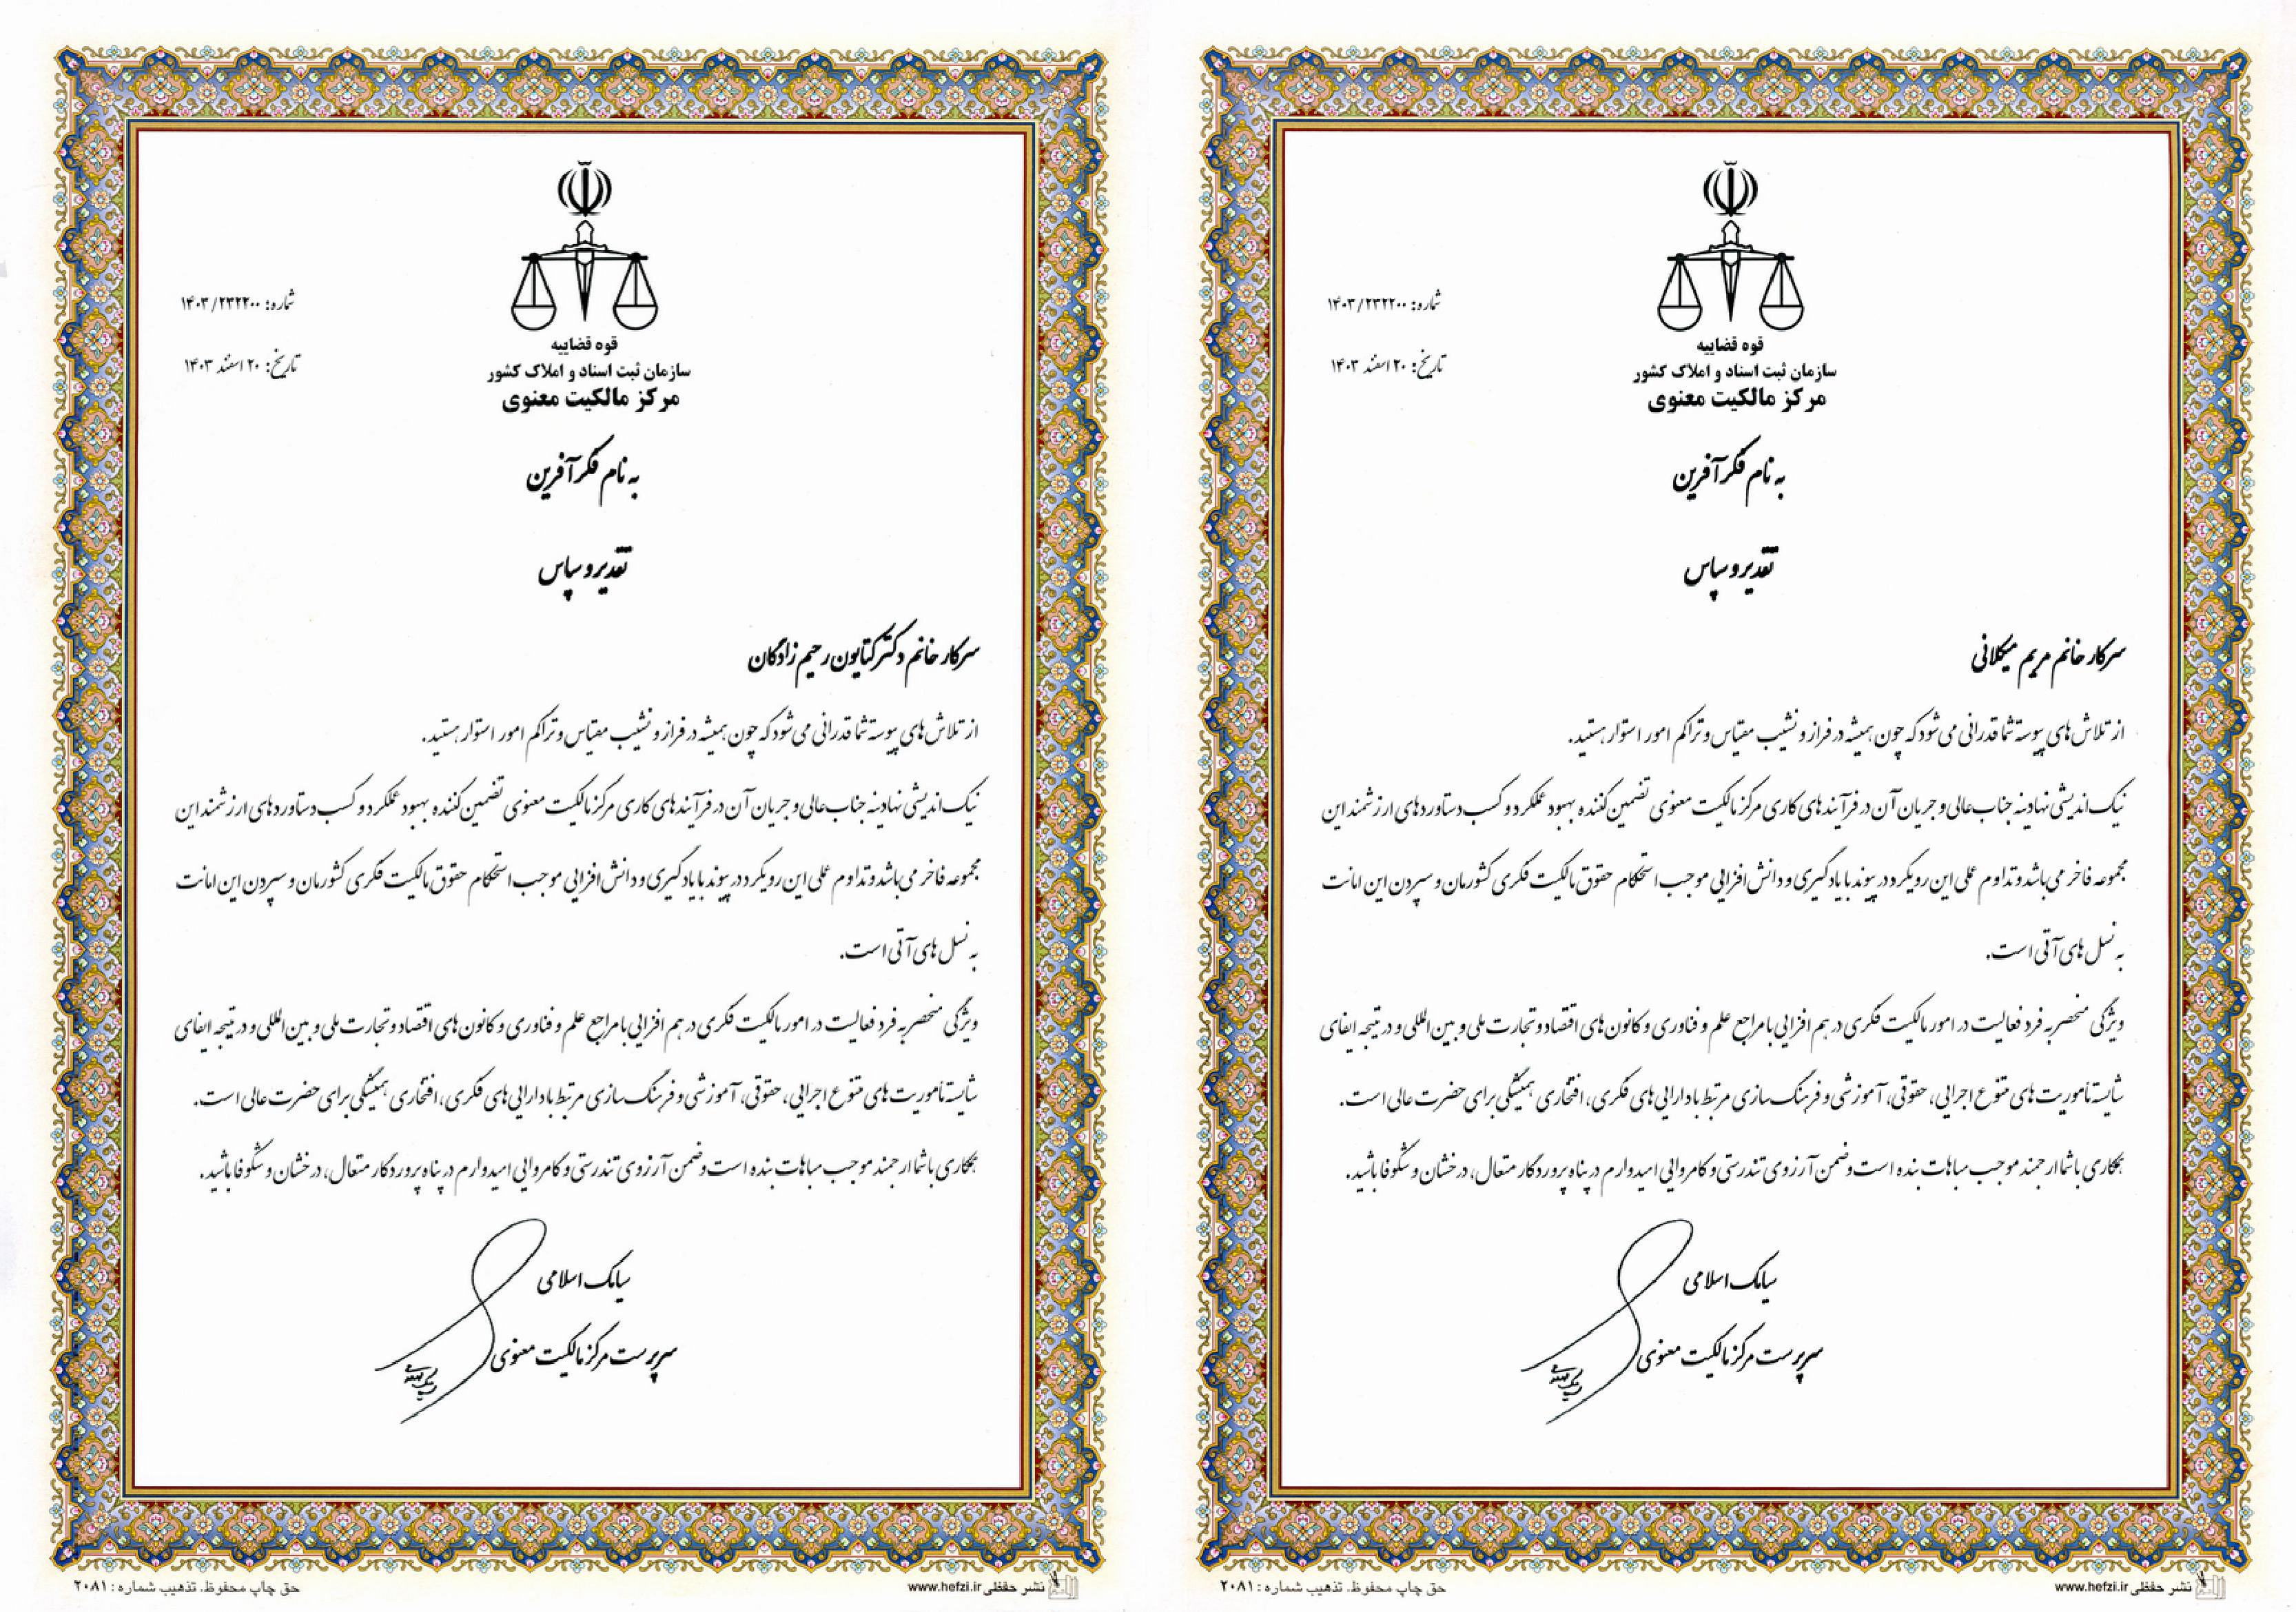 قوه قضاییه
سازمان ثبت اسناد و املاک کشور
مرکز مالکیت معنوی
شماره: ۱۴۰۳/۲۳۲۲۰۰
تاریخ: ۲۰ اسفند ۱۴۰۳
به نام فکرآفرین
تقدیر و سپاس
سرکار خانم مریم میکلانی
از تلاش‌های پیوسته شما قدرانی می‌شود که چون همیشه در فراز و نشیب مقیاس و تراکم امور استوار هستید.
نیک‌اندیشی نهادینه جناب‌عالی و جریان آن در فرآیندهای کاری مرکز مالکیت معنوی تضمین‌کننده بهبود عملکرد و کسب دستاوردهای ارزشمند این
مجموعه فاخر می‌باشد و تداوم عملی این رویکرد در پیوند با یادگیری و دانش‌افزایی موجب استحکام حقوق مالکیت فکری کشورمان و سپردن این امانت
به نسل‌های آتی است.
ویژگی منحصر به فرد فعالیت در امور مالکیت فکری در هم‌افزایی با مراجع علم و فناوری و کانون‌های اقتصاد و تجارت ملی و بین‌المللی و در نتیجه ایفای
شایسته مأموریت‌های متنوع اجرایی، حقوقی، آموزشی و فرهنگ‌سازی مرتبط با دارایی‌های فکری، افتخاری همیشگی برای حضرت عالی است.
همکاری با شما ارجمند موجب مباهات بنده است و ضمن آرزوی تندرستی و کامروایی امیدوارم در پناه پروردگار متعال، درخشان و شکوفا باشید.
سیامک اسلامی
سرپرست مرکز مالکیت معنوی
نشر حفظی www.hefzi.ir
حق چاپ محفوظ. تذهیب شماره: ۲۰۸۱
قوه قضاییه
سازمان ثبت اسناد و املاک کشور
مرکز مالکیت معنوی
شماره: ۱۴۰۳/۲۳۲۲۰۰
تاریخ: ۲۰ اسفند ۱۴۰۳
به نام فکرآفرین
تقدیر و سپاس
سرکار خانم دکتر کتایون رحیم زادگان
از تلاش‌های پیوسته شما قدرانی می‌شود که چون همیشه در فراز و نشیب مقیاس و تراکم امور استوار هستید.
نیک‌اندیشی نهادینه جناب‌عالی و جریان آن در فرآیندهای کاری مرکز مالکیت معنوی تضمین‌کننده بهبود عملکرد و کسب دستاوردهای ارزشمند این
مجموعه فاخر می‌باشد و تداوم عملی این رویکرد در پیوند با یادگیری و دانش‌افزایی موجب استحکام حقوق مالکیت فکری کشورمان و سپردن این امانت
به نسل‌های آتی است.
ویژگی منحصر به فرد فعالیت در امور مالکیت فکری در هم‌افزایی با مراجع علم و فناوری و کانون‌های اقتصاد و تجارت ملی و بین‌المللی و در نتیجه ایفای
شایسته مأموریت‌های متنوع اجرایی، حقوقی، آموزشی و فرهنگ‌سازی مرتبط با دارایی‌های فکری، افتخاری همیشگی برای حضرت عالی است.
همکاری با شما ارجمند موجب مباهات بنده است و ضمن آرزوی تندرستی و کامروایی امیدوارم در پناه پروردگار متعال، درخشان و شکوفا باشید.
سیامک اسلامی
سرپرست مرکز مالکیت معنوی
نشر حفظی www.hefzi.ir
حق چاپ محفوظ. تذهیب شماره: ۲۰۸۱